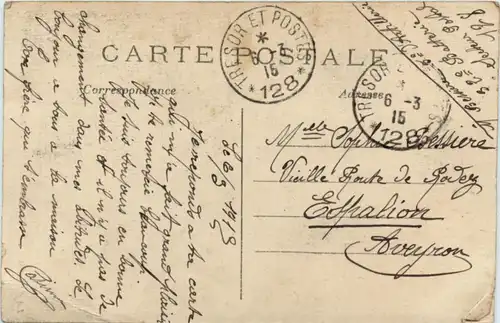 CARTE POSTALE
Correspondance
Adresse
TRESOR ET POSTES
6-3
15
* 128 *
TRESOR
6-3
15
128
Le 6/3 1915
Je réponds à ta carte
qui m'a fait grand plaisir
je te remercie beaucoup
Je suis toujours en bonne
santé et il n'y a pas de
changement dans mes
toujour à tous à la maison
Ton frère qui t'embrasse
Melle Sophie Bessiere
Vieille Route de Rodez
Espalion
Aveyron